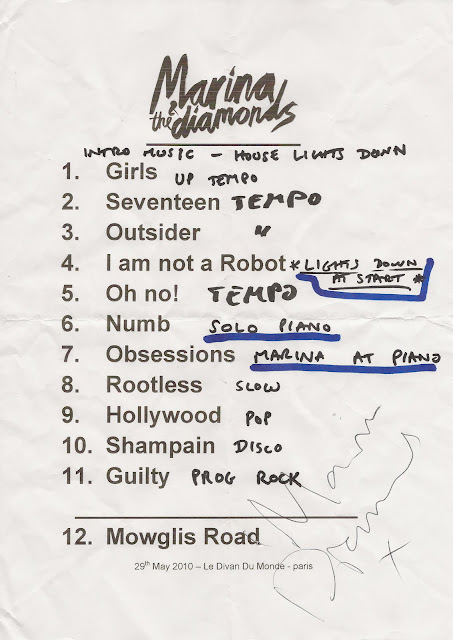 Marina
the & diamonds
INTRO MUSIC - HOUSE LIGHTS DOWN
1. Girls UP TEMPO
2. Seventeen TEMPO
3. Outsider "
4. I am not a Robot *LIGHTS DOWN
AT START *
5. Oh no! TEMPO
6. Numb SOLO PIANO
7. Obsessions MARINA AT PIANO
8. Rootless SLOW
9. Hollywood POP
10. Shampain DISCO
11. Guilty PROG ROCK
12. Mowglis Road
29th May 2010 – Le Divan Du Monde - paris
Marina
X